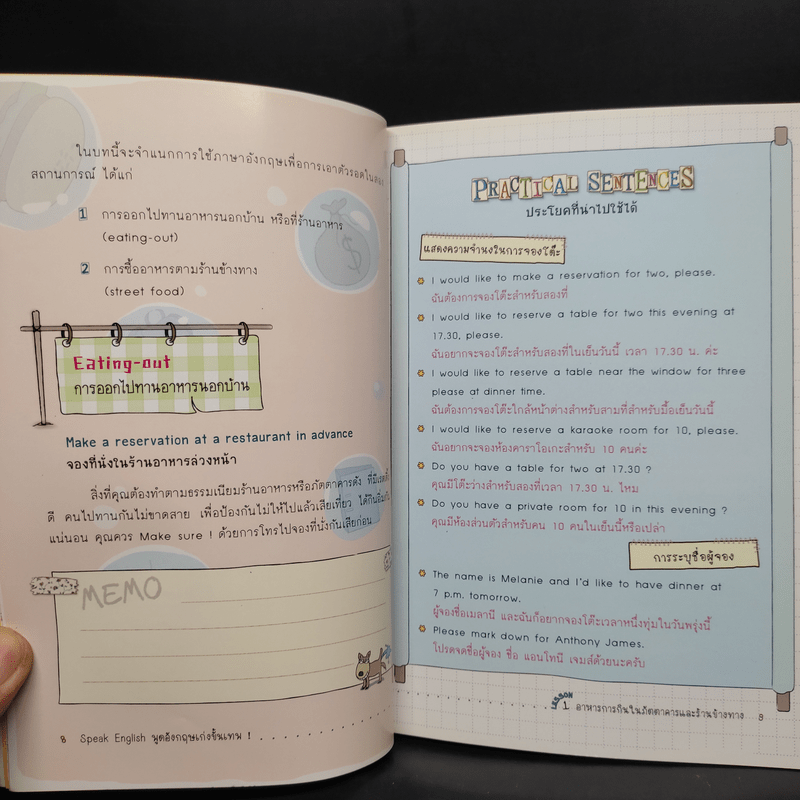 ในบทนี้จะจำแนกการใช้ภาษาอังกฤษเพื่อการเอาตัวรอดใน
สถานการณ์ ได้แก่
1 การออกไปทานอาหารนอกบ้าน หรือที่ร้านอาหาร
(eating-out)
2 การซื้ออาหารตามร้านข้างทาง
(street food)
Eating-out
การออกไปทานอาหารนอกบ้าน
Make a reservation at a restaurant in advance
จองที่นั่งในร้านอาหารล่วงหน้า
สิ่งที่คุณต้องทำตามธรรมเนียมร้านอาหารหรือภัตตาคารดัง ที่มี
ดี คนไปทานกันไม่ขาดสาย เพื่อป้องกันไม่ให้ไปแล้วเสียเที่ยว ได้กินอิ่ม
แน่นอน คุณควร Make sure ! ด้วยการโทรไปจองที่นั่งกันเสียก่อน
MEMO
8 Speak English พูดอังกฤษเก่งขั้นเทพ !
PRACTICAL SENTENCES
ประโยคที่นำไปใช้ได้
แสดงความจำนงในการจองโต๊ะ
I would like to make a reservation for two, please.
ฉันต้องการจองโต๊ะสำหรับสองที่
I would like to reserve a table for two this evening at
17.30, please.
ฉันอยากจะจองโต๊ะสำหรับสองที่ในเย็นวันนี้ เวลา 17.30 น. ค่ะ
I would like to reserve a table near the window for three
please at dinner time.
ฉันต้องการจองโต๊ะใกล้หน้าต่างสำหรับสามที่สำหรับมื้อเย็นวันนี้
I would like to reserve a karaoke room for 10, please.
ฉันอยากจะจองห้องคาราโอเกะสำหรับ 10 คนค่ะ
Do you have a table for two at 17.30 ?
คุณมีโต๊ะว่างสำหรับสองที่เวลา 17.30 น. ไหม
Do you have a private room for 10 in this evening ?
คุณมีห้องส่วนตัวสำหรับคน 10 คนในเย็นนี้หรือเปล่า
การระบุชื่อผู้จอง
The name is Melanie and I'd like to have dinner at
7 p.m. tomorrow.
ผู้จองชื่อเมลานี และฉันก็อยากจองโต๊ะเวลาหนึ่งทุ่มในวันพรุ่งนี้
Please mark down for Anthony James.
โปรดจดชื่อผู้จอง ชื่อ แอนโทนี เจมส์ด้วยนะครับ
LESSON 1 อาหารการกินในภัตตาคารและร้านข้างทาง 9